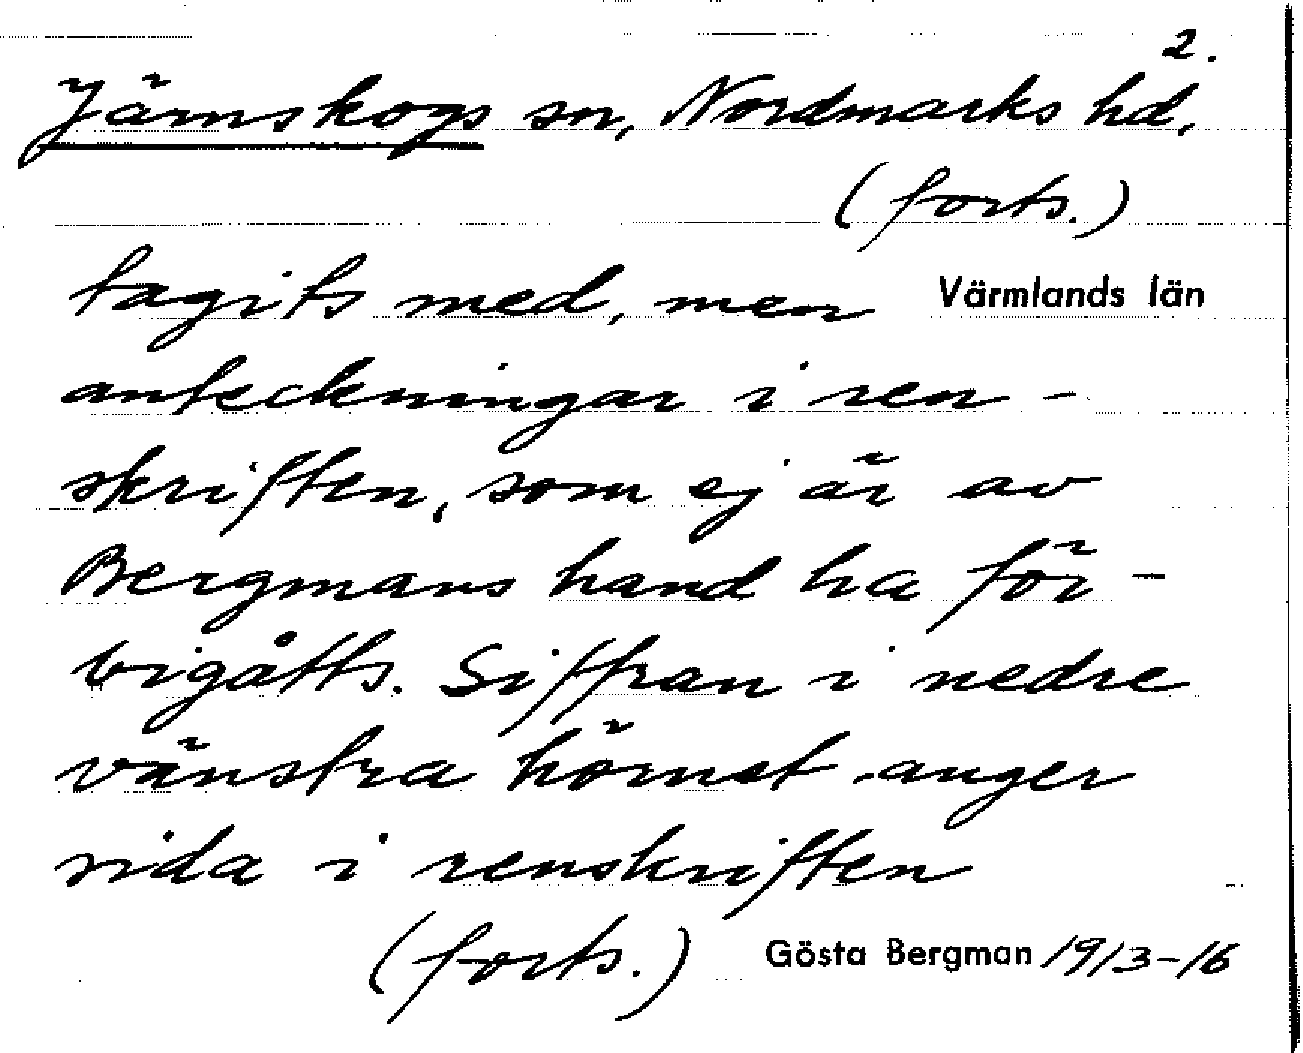 2.
Järnskogs sn, Nordmarks hd,
(forts.)
tagits med, men Värmlands län
anteckningar i ren-
skriften, som ej är av
Bergmans hand ha för-
bigåtts. Siffran i nedre
vänstra hörnet anger
sida i renskriften
(forts.) Gösta Bergman 1913-16